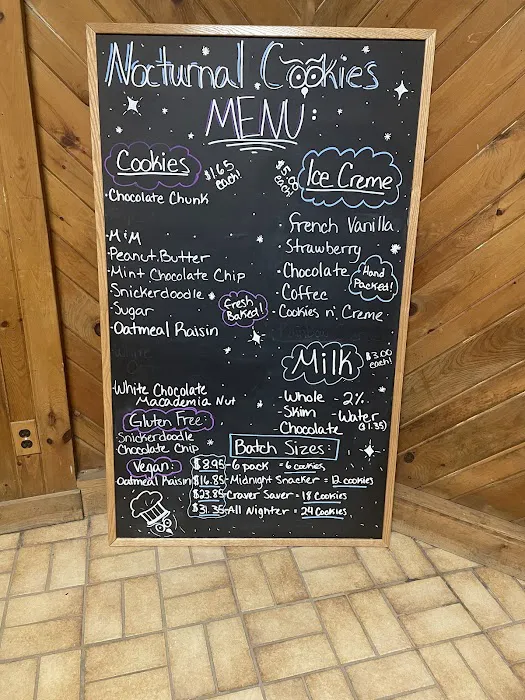 Nocturnal Cookies
MENU:
Cookies
$1.65 each!
· Chocolate Chunk
· M&M
· Peanut Butter
· Mint Chocolate Chip
Snickerdoodle
· Sugar
· Oatmeal Raisin
Fresh Baked!
· White Chocolate
Macadamia Nut
Gluten Free:
Snickerdoodle
Chocolate Chip
Vegan:
Oatmeal Raisin
$5.00 each!
Ice Creme
· French Vanilla
· Strawberry
· Chocolate
· Coffee
· Cookies n' Creme
Hand Packed!
Milk
$3.00 each!
- Whole - 2%
- Skim - Water
- Chocolate ($1.35)
Batch Sizes:
$8.95 - 6 pack = 6 cookies
$16.85 - Midnight Snacker = 12 cookies
$23.85 - Craver Saver = 18 Cookies
$31.35 - All Nighter = 24 Cookies